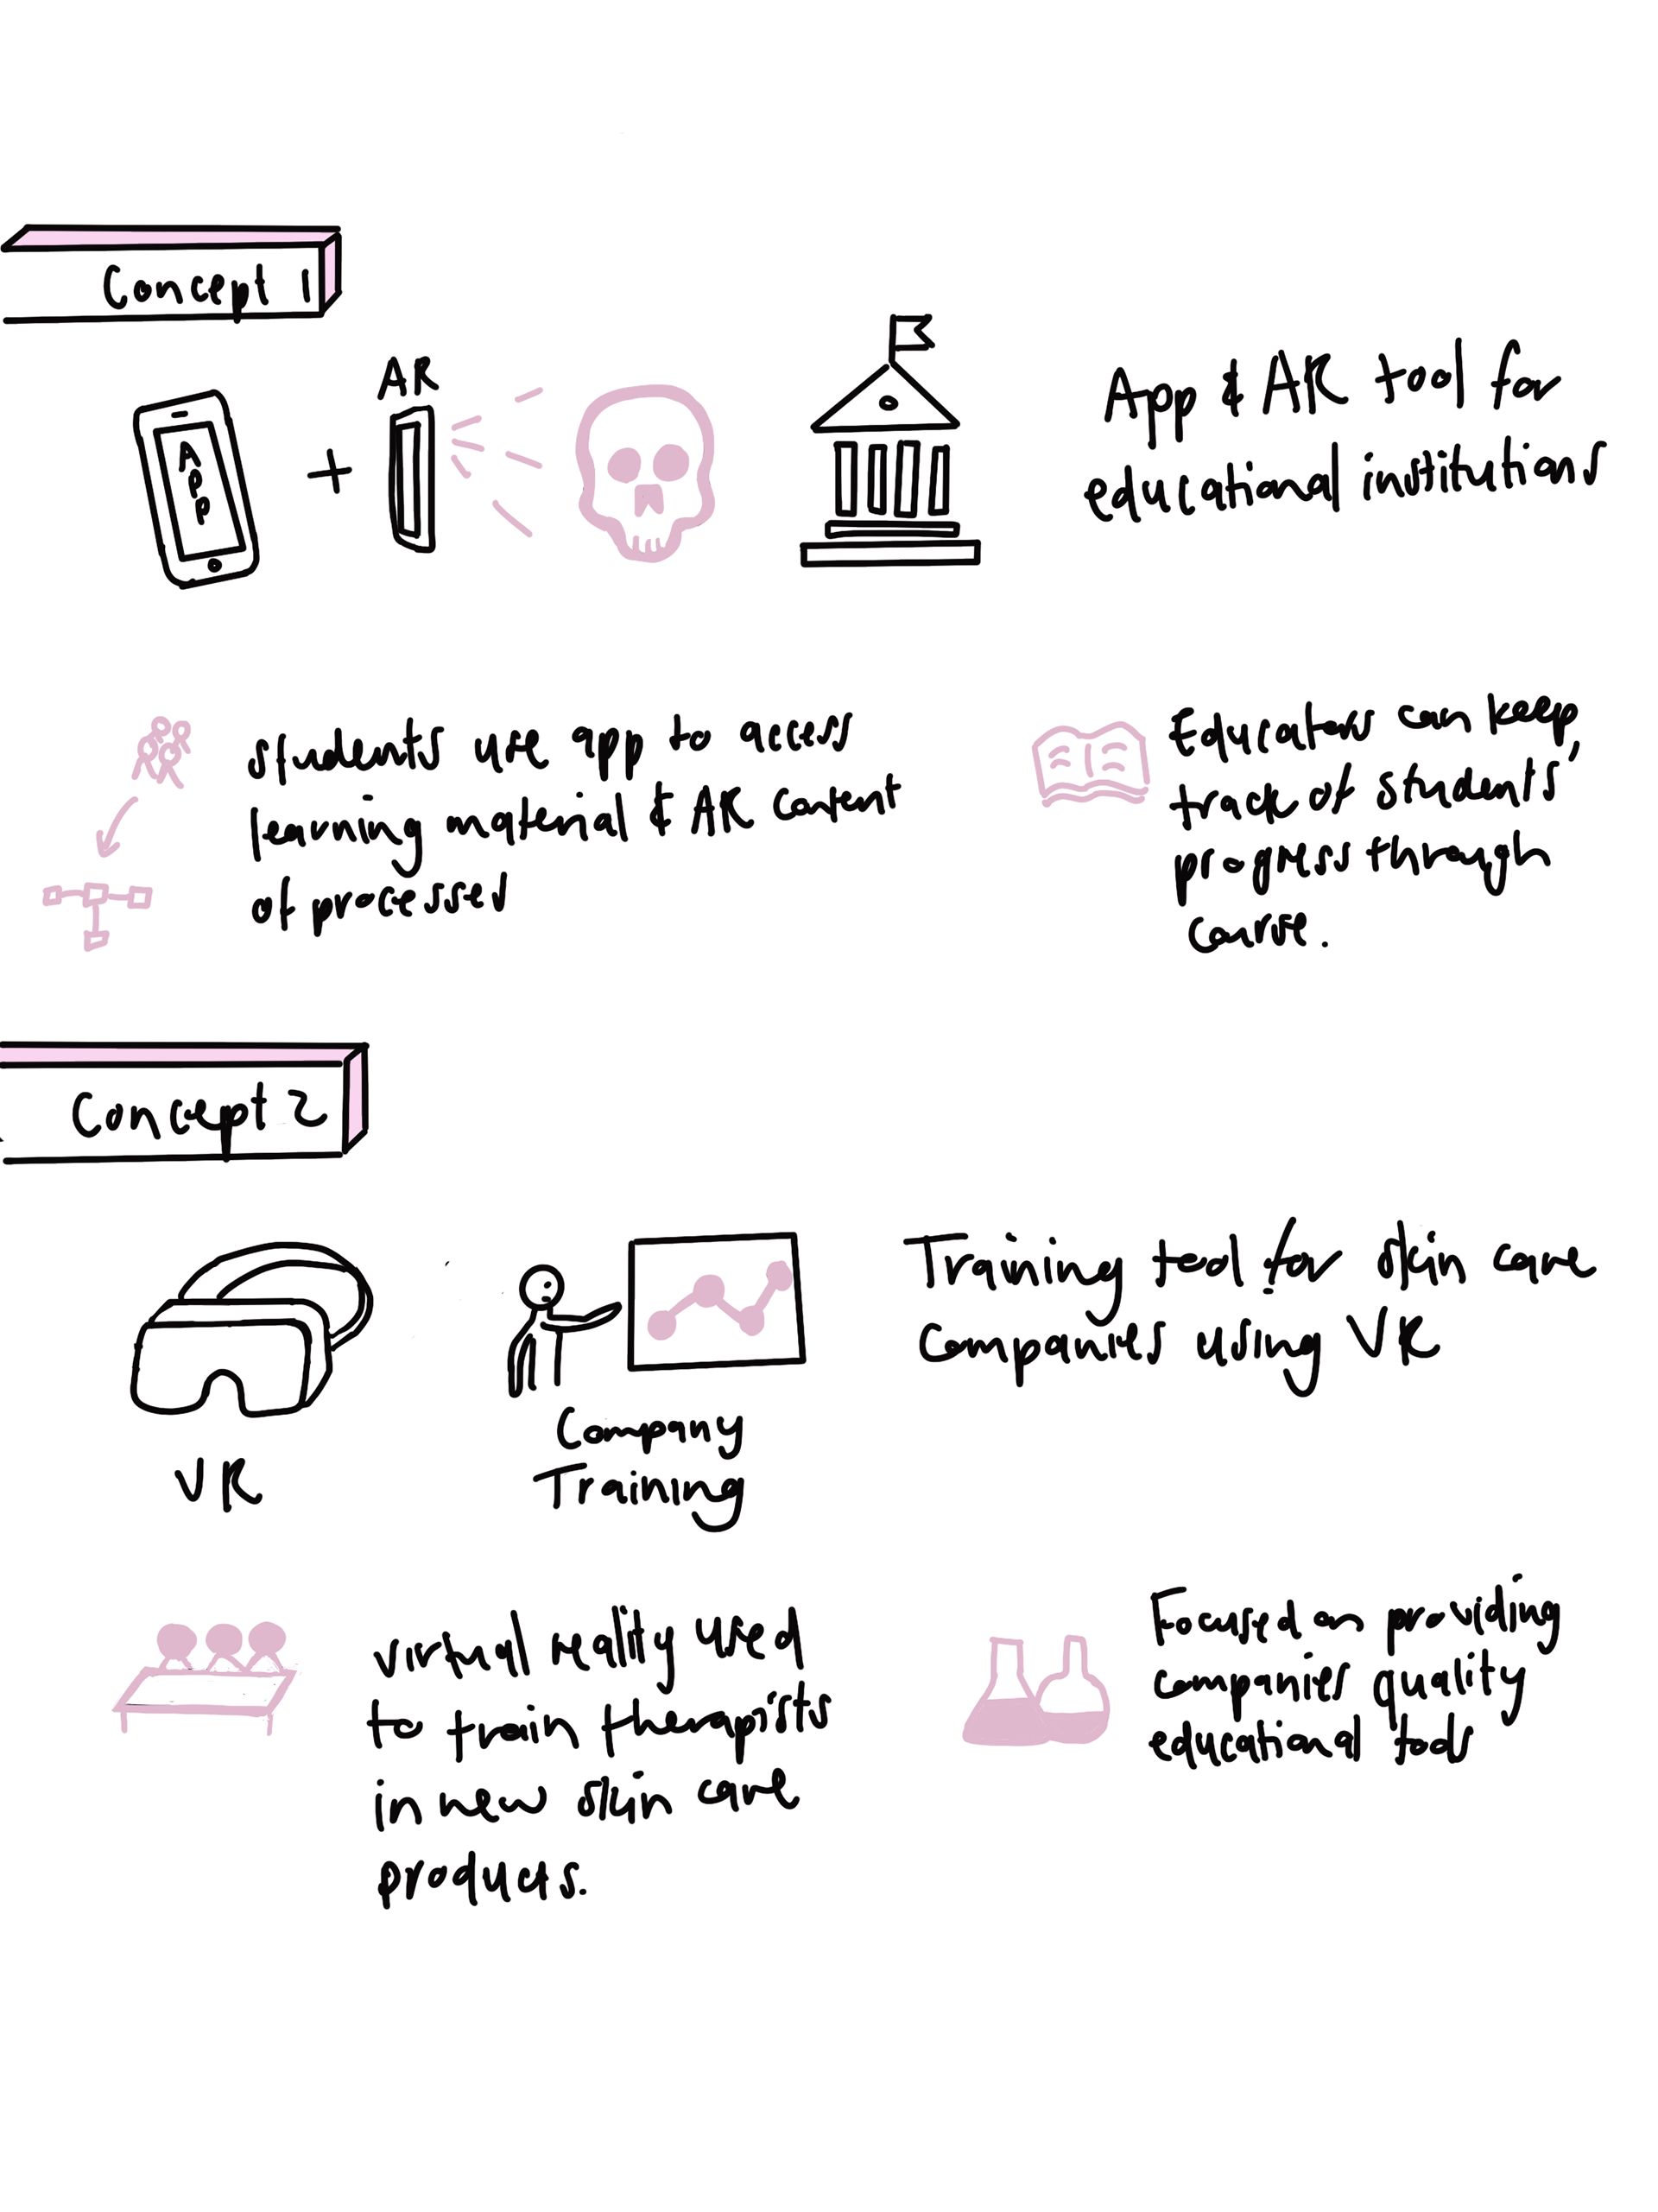 Concept 1
AR
App
App & AR tool for
educational institutions
students use app to access
learning material & AR content
of processes
Educators can keep
track of students'
progress through
course.
Concept 2
VR
Company
Training
Training tool for skin care
companies using VR
virtual reality used
to train therapists
in new skin care
products.
Focused on providing
companies quality
educational tools